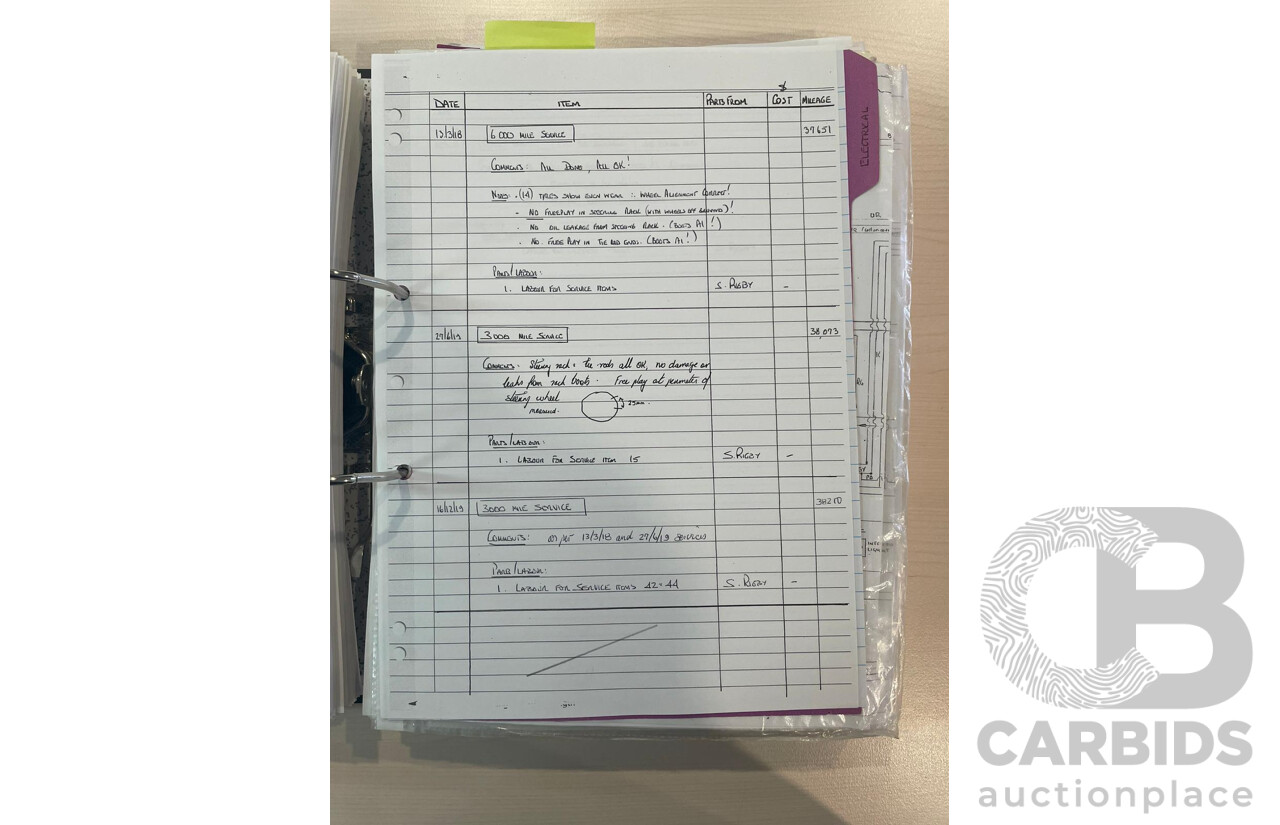 $
DATE ITEM PARTS FROM COST MILEAGE
13/3/18 6000 MILE SERVICE 37651
COMMENTS: ALL DONE, ALL OK!
NOTES: (14) TYRES SHOW EVEN WEAR ∴ WHEEL ALIGNMENT CORRECT!
- NO FREEPLAY IN STEERING RACK (WITH WHEELS OFF GROUND)!
- NO OIL LEAKAGE FROM STEERING RACK. (BOOTS A1!)
- NO FREE PLAY IN TIE ROD ENDS. (BOOTS A1!)
PARTS/LABOUR:
1. LABOUR FOR SERVICE ITEMS S. RIGBY -
27/6/19 3000 MILE SERVICE 38,073
COMMENTS: Steering rack & tie rods all OK, no damage or
leaks from rack boots. Free play at perimeter of
steering wheel
measured. 25mm.
PARTS/LABOUR:
1. LABOUR FOR SERVICE ITEM 15 S.RIGBY -
16/12/19 3000 MILE SERVICE 38210
COMMENTS: as per 13/3/18 and 27/6/19 SERVICES
PARTS/LABOUR:
1. LABOUR FOR SERVICE ITEMS 42-44 S. RIGBY -
ELECTRICAL
CARBIDS
auctionplace